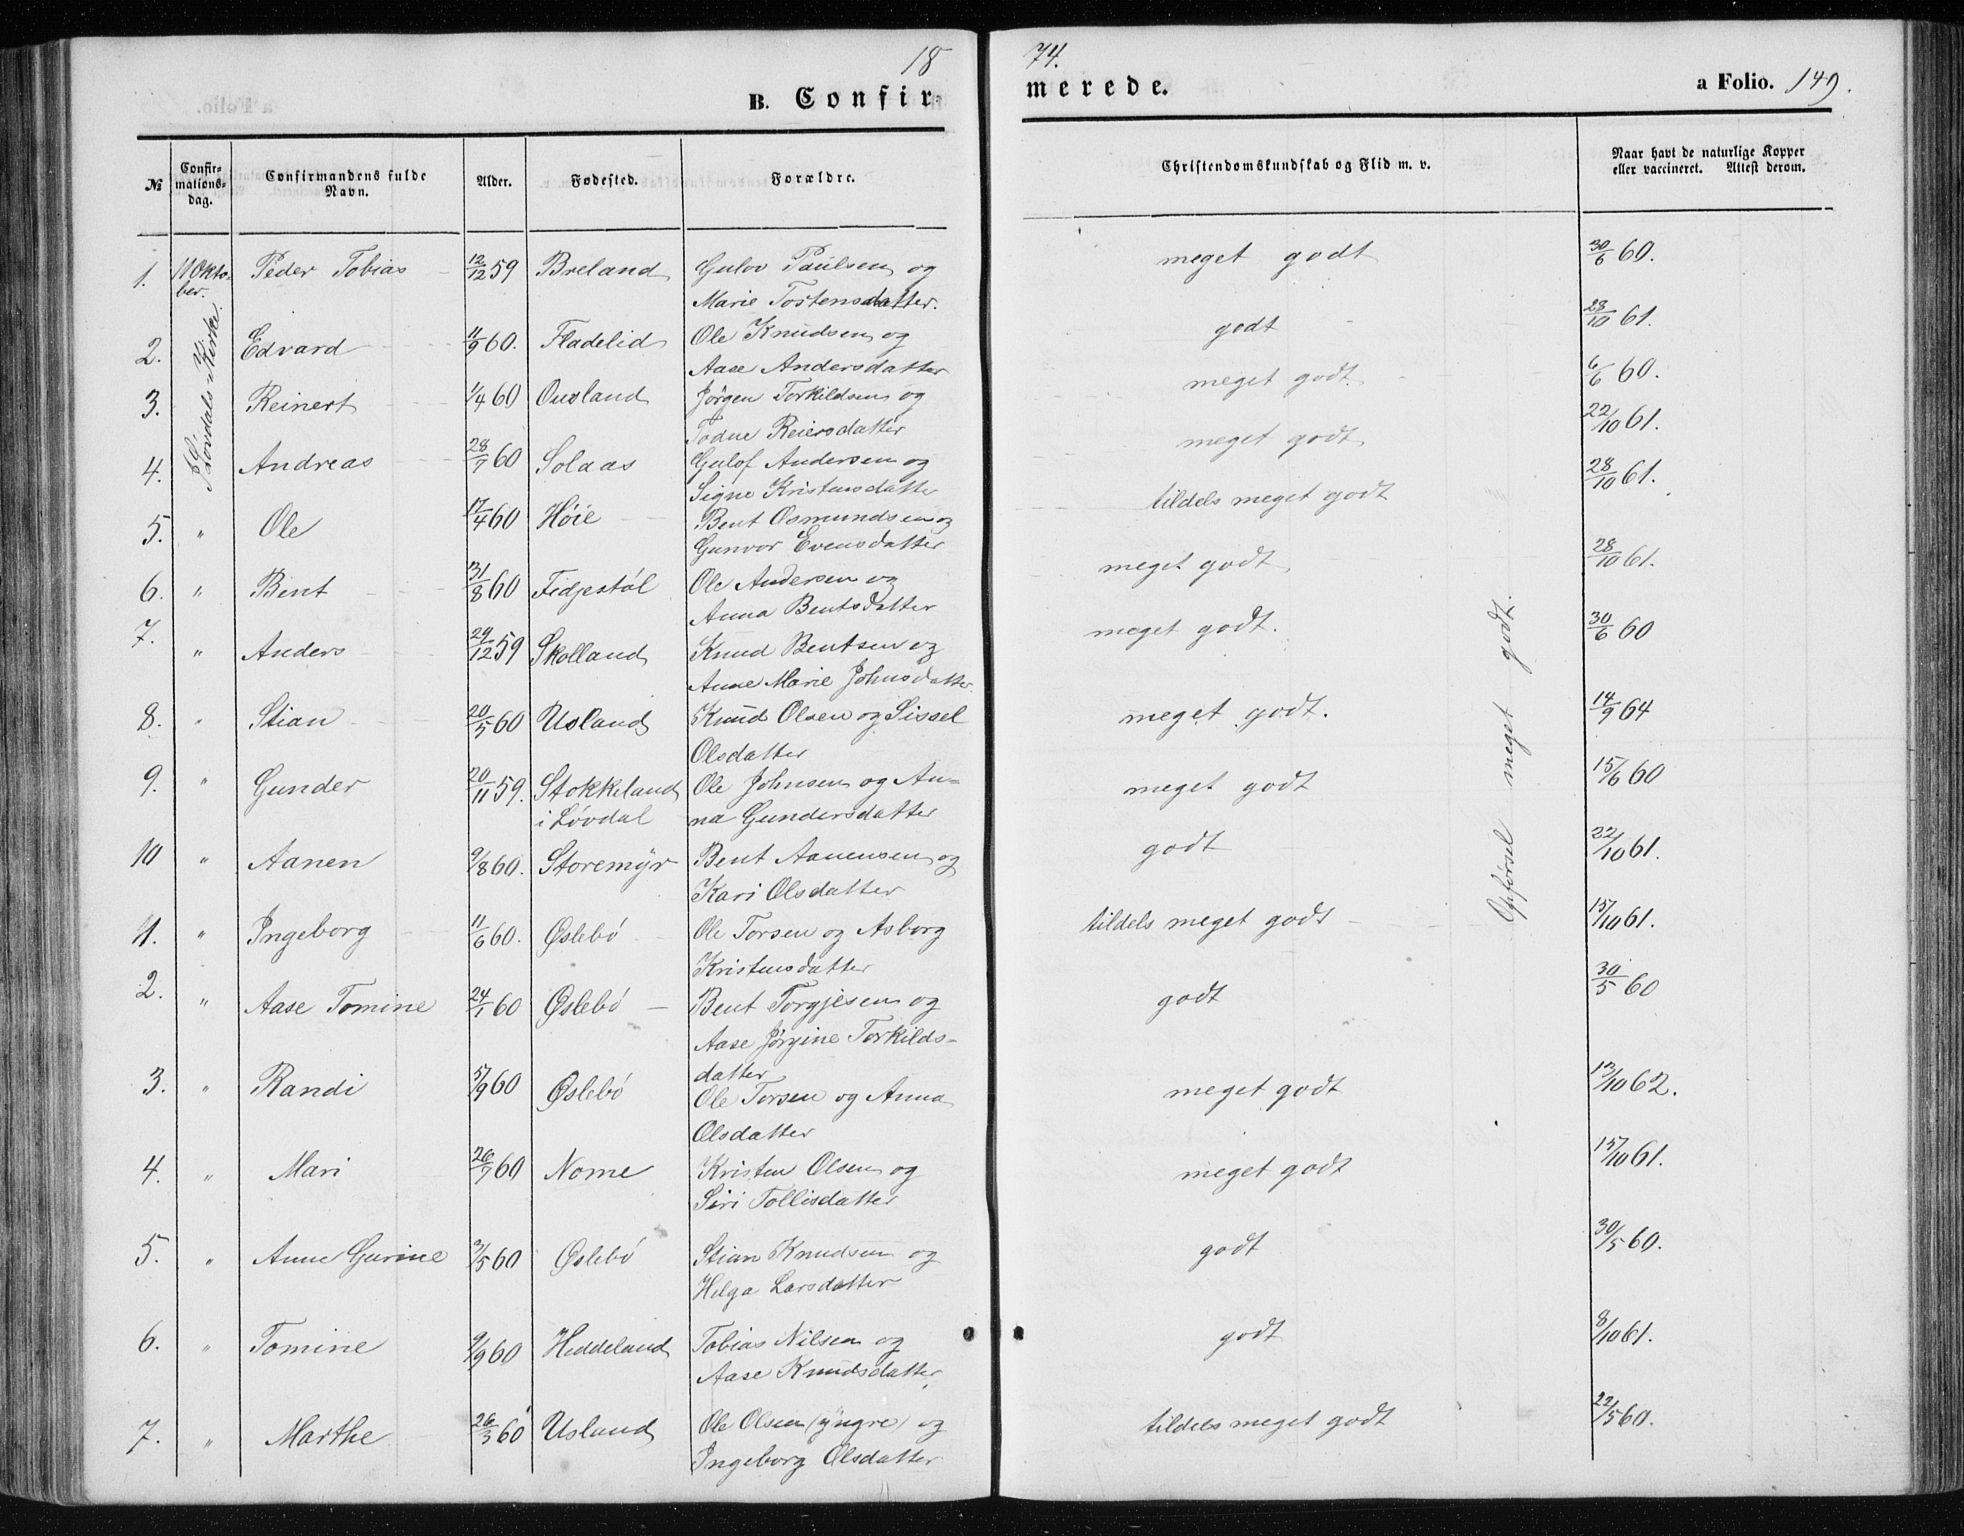 18 74.
B. Confirmerede. a Folio. 149.
№ Confirmationsdag. Confirmandens fulde Navn. Alder. Fødested. Forældre. Christendomskundskab og Flid m. v. Naar havt de naturlige Kopper eller vaccineret. Attest derom.
1. 11 Oktober. Peder Tobias 12/12 59 Breland Gulov Paulsen og meget godt 30/6 60.
Marie Tostensdatter.
Løvdals Kirke.
2. Edvard 11/9 60. Fladelid Ole Knudsen og godt 28/10 61.
Aase Andersdatter
3. Reinert 1/4 60 Ousland Jørgen Torkildsen og meget godt. 6/6 60.
Todne Reiersdatter
4. Andreas 28/7 60 Solaas Gulof Andersen og meget godt 22/10 61.
Signe Kristensdatter
5. " Ole 17/4 60 Høie Bent Osmundsen og tildels meget godt 28/10 61.
Gunvor Evensdatter
6. " Bent 31/8 60 Fidjestøl Ole Andersen og meget godt 28/10 61.
Anna Bentsdatter
7. " Anders 29/12 59 Skolland Knud Bentsen og meget godt. 30/6 60
Anne Marie Johnsdatter
8. " Stian 20/5 60 Usland Knud Olsen og Sissel meget godt. 14/9 64
Olsdatter
9. " Gunder 20/11 59. Stokkeland Ole Johnsen og An- meget godt 15/6 60
i Løvdal na Gundersdatter
10 " Aanen 9/8 60. Storemyr Bent Aanensen og godt 22/10 61.
Kari Olsdatter
11. " Ingeborg 11/6 60. Øslebø Ole Torsen og Asborg tildels meget godt 15/10 61.
Kristensdatter
2. " Aase Tomine 24/1 60 Øslebø Bent Torgjesen og godt 30/5 60
Aase Jørgine Torkilds-
datter
3. " Randi 5/9 60 Øslebø Ole Torsen og Anna meget godt 13/10 62.
Olsdatter
4. " Mari 26/7 60 Nome Kristen Olsen og meget godt 15/10 61.
Siri Tollisdatter
5. " Anne Gurine 3/5 60 Øslebø Stian Knudsen og godt 30/5 60.
Helga Larsdatter
6. " Tomine 9/9 60 Heddeland Tobias Nilsen og godt 8/10 61.
Aase Knudsdatter
7. " Marthe 26/3 60 Usland Ole Olsen (yngre) og tildels meget godt 22/5 60.
Ingeborg Olsdatter
Opførsel meget godt.